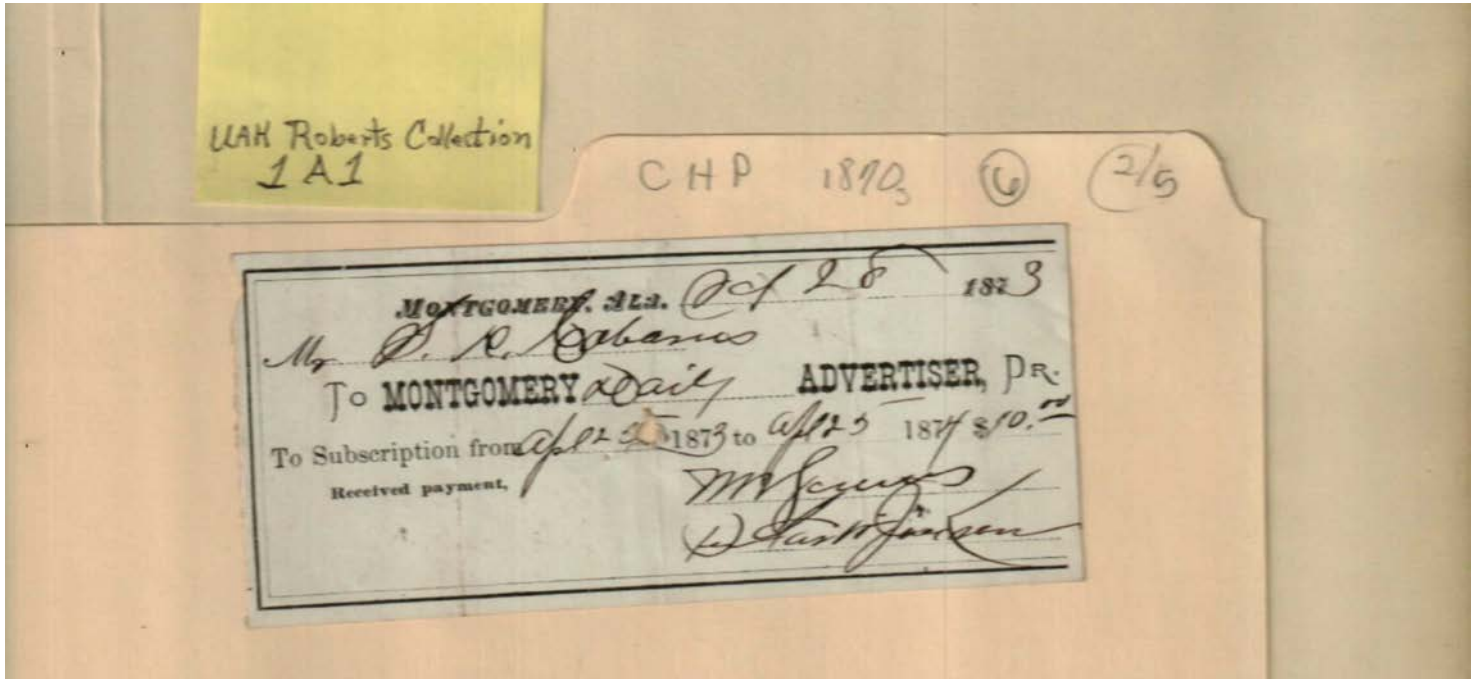 UAH Roberts Collection
1A1
CHP 1870s 6 2/5
MONTGOMERY, ALA. Oct 28 1873
Mr S. R. Cabaniss
To MONTGOMERY Daily ADVERTISER, DR.
To Subscription from Apl 25 1873 to Apl 25 1874 $10.00
Received payment,